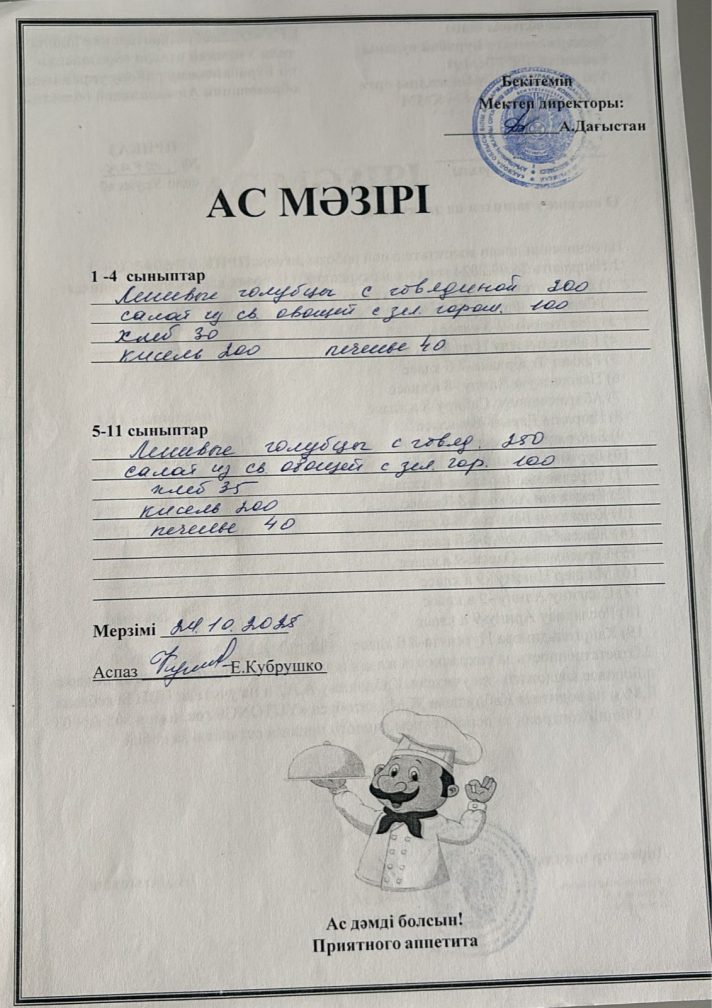 Бекітемін
Мектеп директоры:
А.Дағыстан
АС МӘЗІРІ
1 -4 сыныптар
Ленивые голубцы с говядиной 200
салат из св. овощей с зел. горош. 100
хлеб 30
кисель 200 печенье 40
5-11 сыныптар
Ленивые голубцы с говяд. 250
салат из св овощей с зел гор. 100
хлеб 35
кисель 200
печенье 40
Мерзімі 24.10.2025
Аспаз Е.Кубрушко
Ас дәмді болсын!
Приятного аппетита